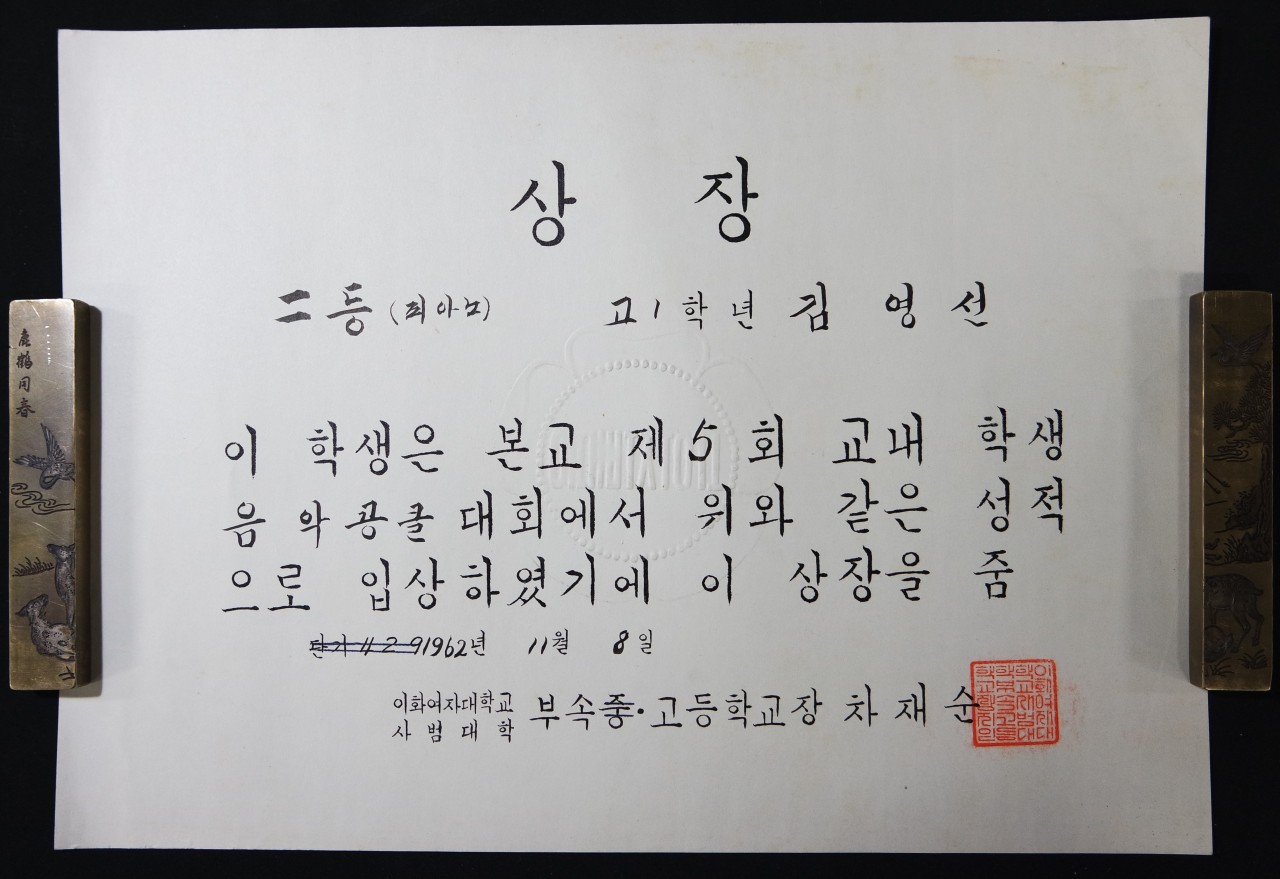 상 장
二등 (피아노) 고1학년 김영선
이 학생은 본교 제5회 교내 학생
음악콩쿨대회에서 위와 같은 성적
으로 입상하였기에 이 상장을 줌
단기 429 1962년 11월 8일
이화여자대학교
사범대학 부속중·고등학교장 차재순
鹿鶴同春